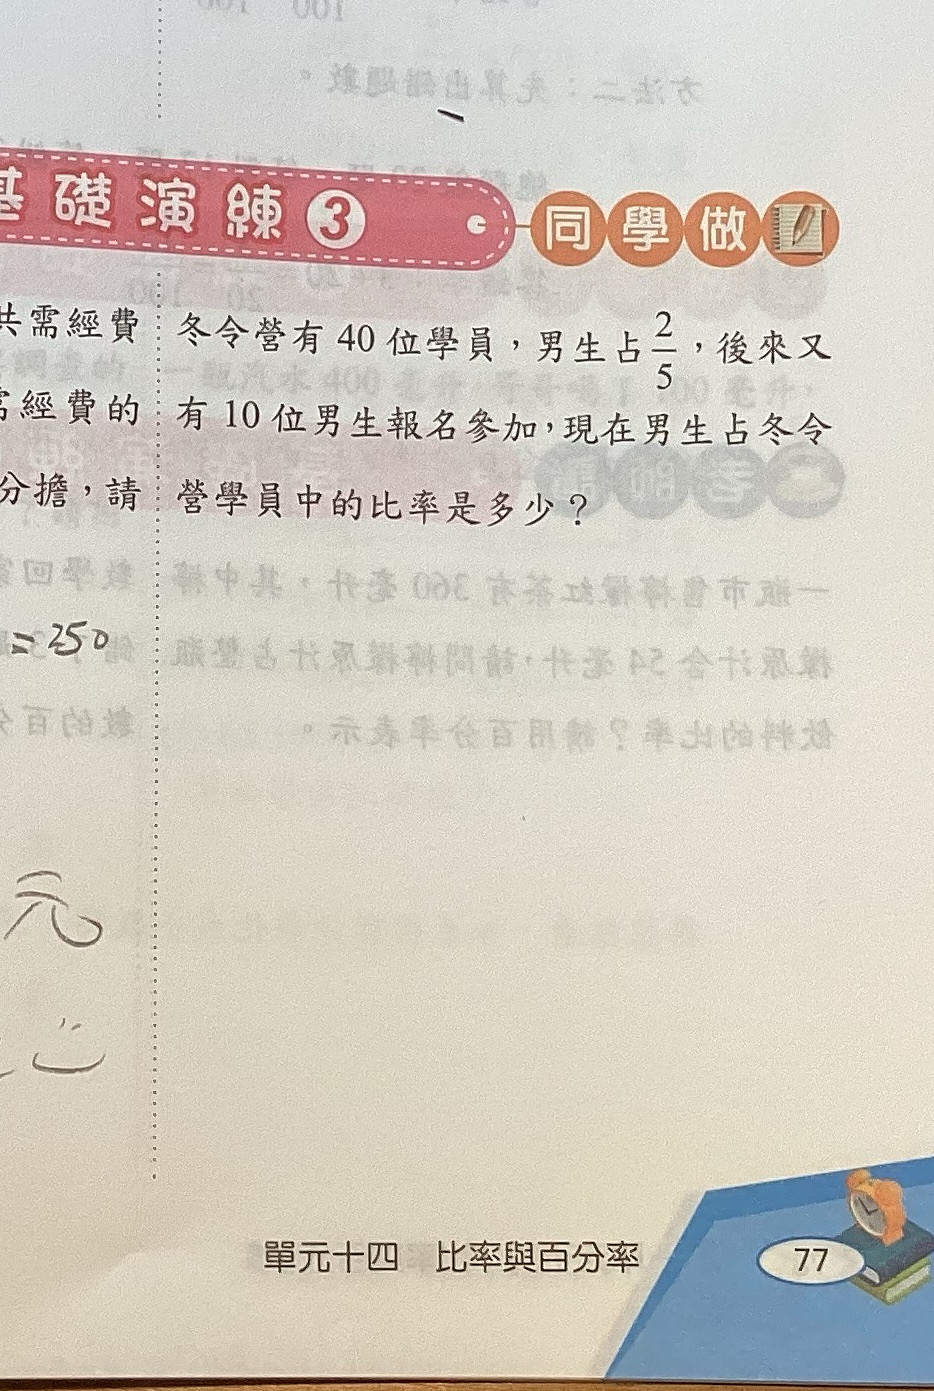 基礎演練3 同學做
共需經費
經費的
分擔，請
=250
元
冬令營有 40 位學員，男生占2/5，後來又
有 10 位男生報名參加，現在男生占冬令
營學員中的比率是多少？
單元十四 比率與百分率
77